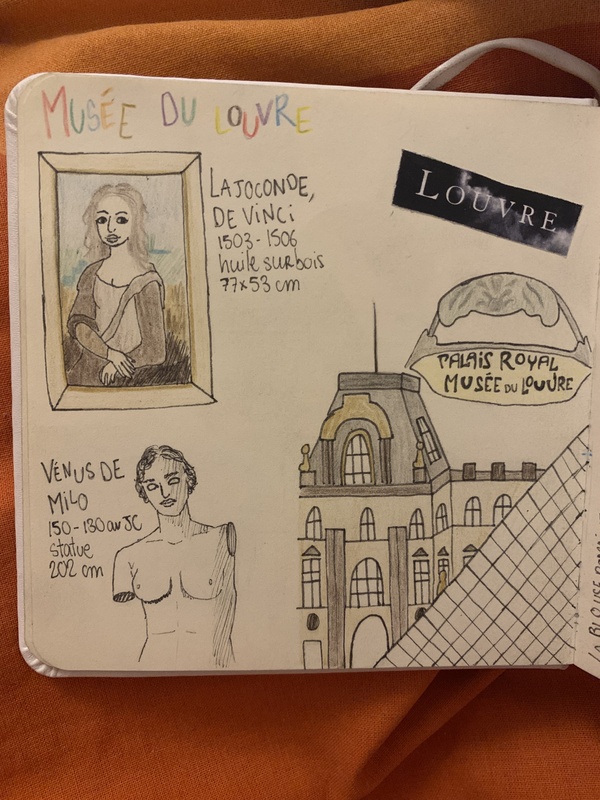 MUSÉE DU LOUVRE
LA JOCONDE,
DE VINCI
1503-1506
huile sur bois
77x53 cm
LOUVRE
PALAIS ROYAL
MUSÉE DU LOUVRE
VÉNUS DE
MILO
150-130 av JC
statue
202 cm
LA BLOUSE